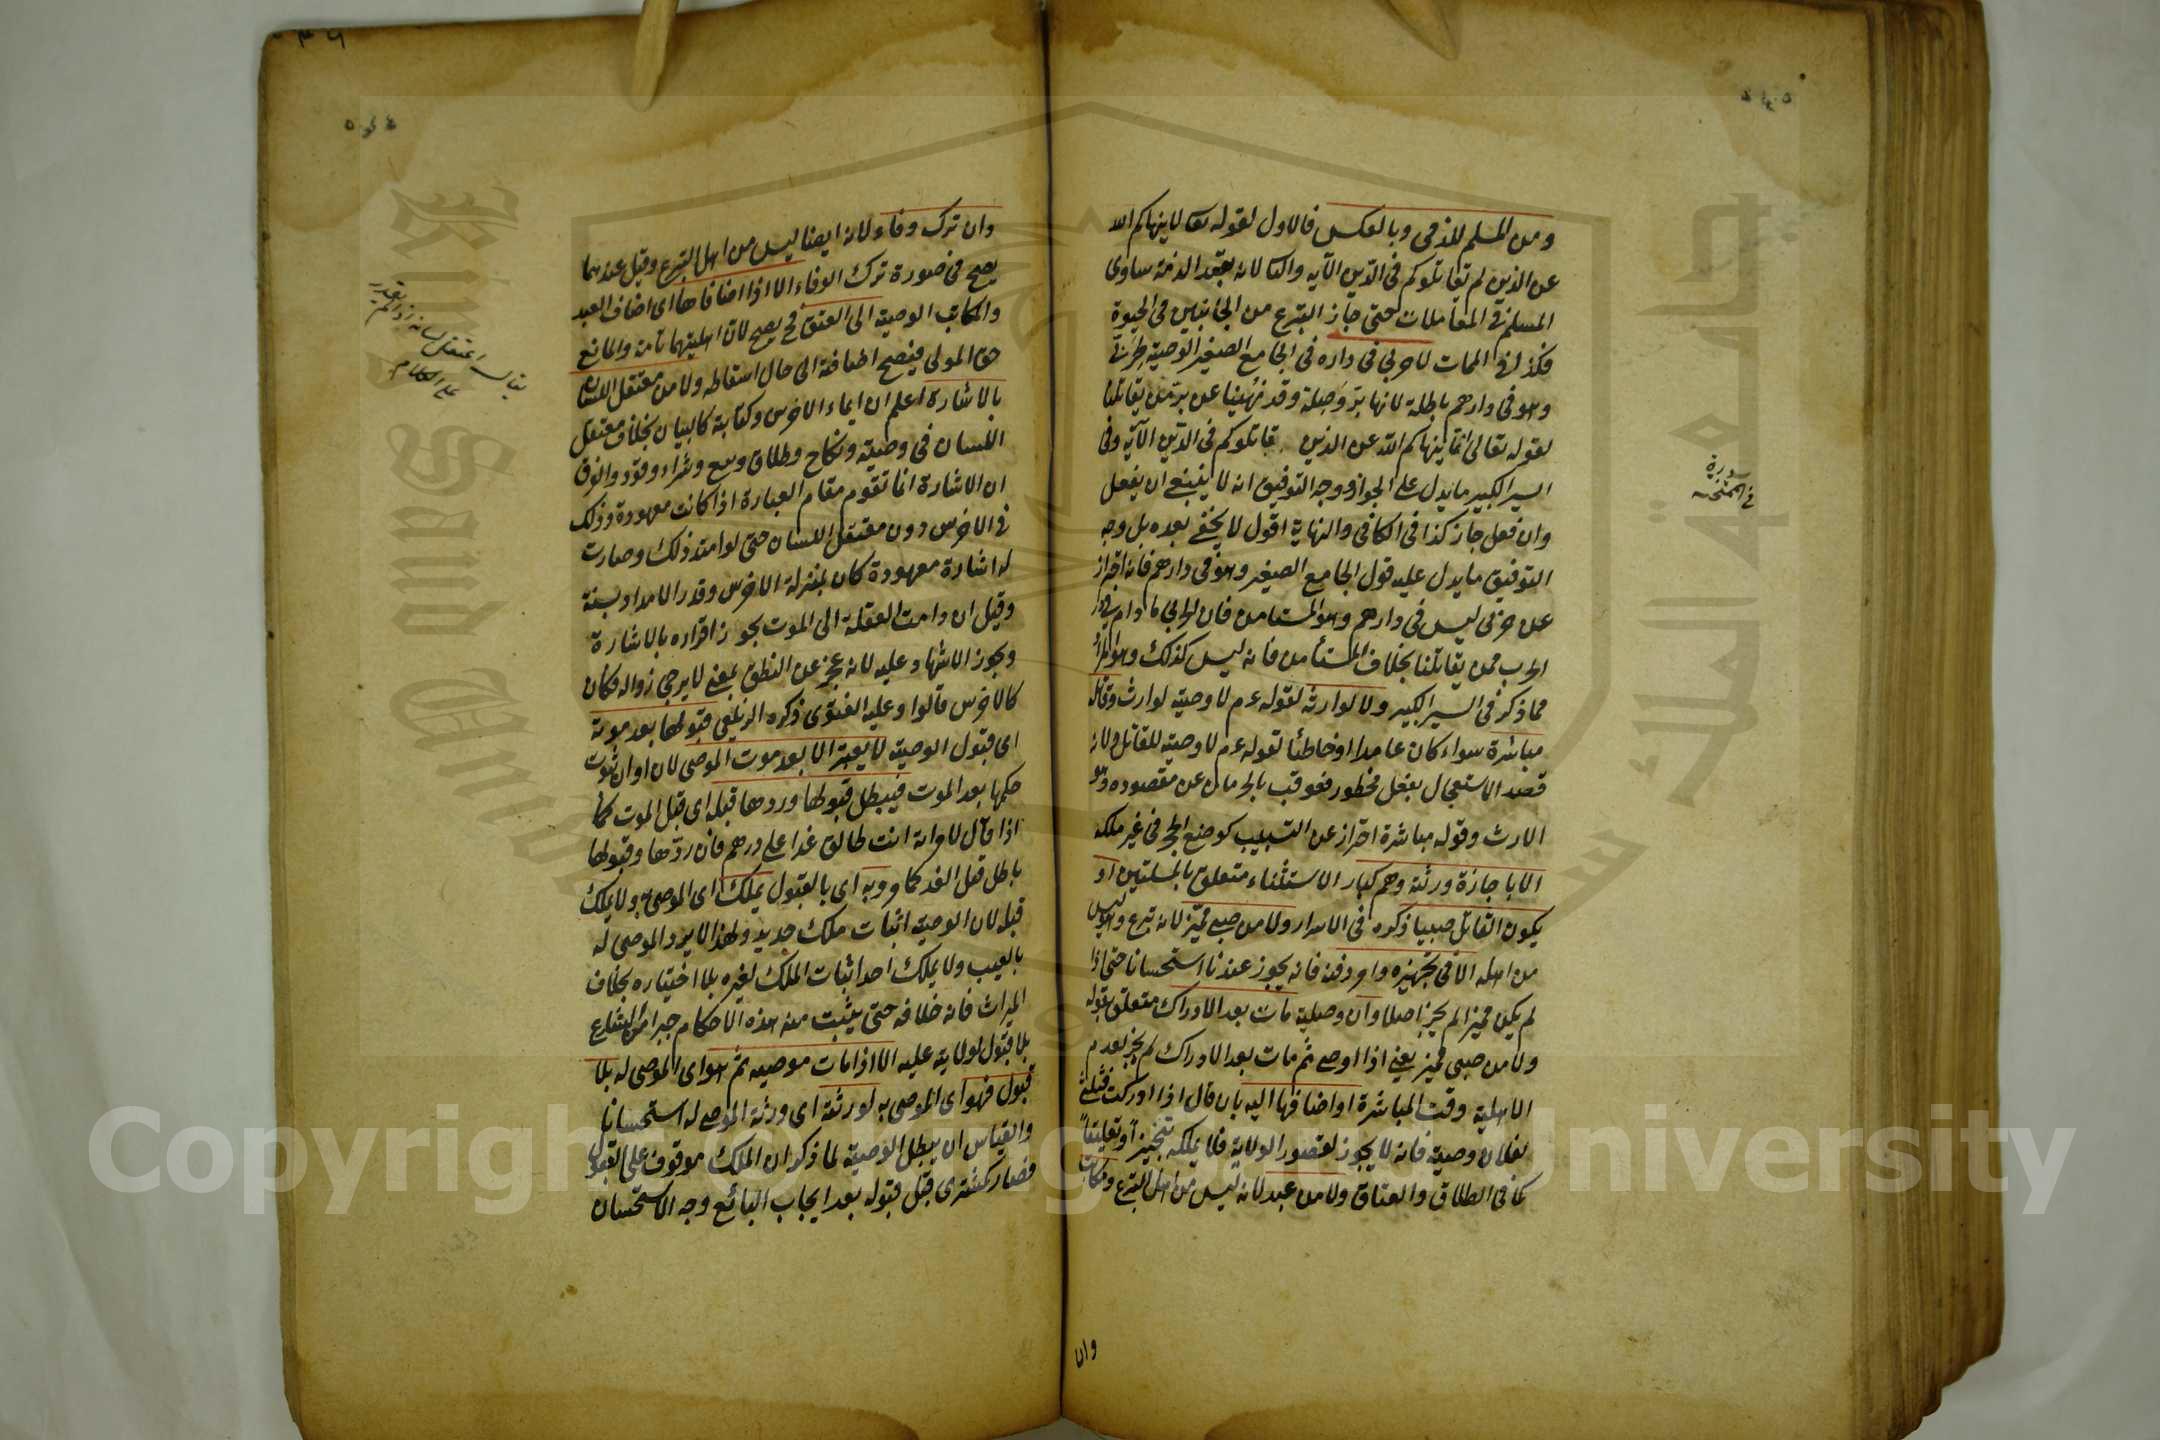 ومن المسلم للذمى وبالعكس فالاول لقوله تعا لا ينهاكم الله
عن الذين لم يقاتلوكم فى الدين الآيه والثا لانه بعقد الذمة ساوى
المسلم فى المعاملات حتى جاز التبرع من الجانبين فى الحيوة
فكذا فى الممات لا حربى فى داره فى الجامع الصغير الوصية لحربى
وهو فى دارهم باطلة لانها بر وصلة وقد نهينا عن بر من يقاتلنا
لقوله تعالى انما ينهاكم الله عن الذين قاتلوكم فى الدين الآيه وفى
السير الكبير ما يدل على الجواز ووجه التوفيق انه لا ينبغى ان يفعل
وان فعل جاز كذا فى الكافى والنهاية اقول لا يخفى بعده بل وجه
التوفيق ما يدل عليه قول الجامع الصغير وهو فى دارهم فانه احتراز
عن حربى ليس فى دارهم وهو المستامن فان الحربى ما دام فى دار
الحرب ممن يقاتلنا بخلاف المستأمن فانه ليس كذلك وهو المراد
مما ذكر فى السير الكبير ولا لوارثه لقوله عم لا وصية لوارث وقاتله
مباشرة سواء كان عامدا او خاطئا لقوله عم لا وصية للقاتل ولانه
قصد الاستعجال بفعل محظور فعوقب بالحرمان عن مقصوده وهو
الارث وقوله مباشرة احتراز عن التسبيب كوضع الحجر فى غير ملكه
الا باجازة ورثته وهم كبار الاستثناء متعلق بالمسئلتين او
يكون القاتل صبييا ذكره فى الاسرار ولا من صبى مميز لانه تبرع وهو ليس
من اهله الا فى تجهيزه وامر دفنه فانه يجوز عندنا استحسانا حتى اذا
لم يكن مميزا لم يجز اصلا وان وصلية مات بعد الادراك متعلق بقوله
ولا من صبى مميز يعنى اذا اوصى ثم مات بعد الادراك لم يجز لعدم
الاهلية وقت المباشرة او اضافها اليه بان قال اذا ادركت فثلثى
لفلان وصية فانه لا يجوز لقصور الولاية فلا يملكه تنجيزا وتعليقا
كما فى الطلاق والعتاق ولا من عبد لانه ليس من اهل التبرع ومكاتب
وان
سورة
فى الممتحنه
وان ترك وفاء لانه ايضا ليس من اهل التبرع وقيل عندهما
يصح فى صورة ترك الوفاء الا اذا اضافاها اى اضاف العبد
والمكاتب الوصية الى العتق فح يصح لان اهليتهما تامة والمانع
حق المولى فيصح اضافته الى حال اسقاطه ولا من معتقل اللسان
بالاشارة اعلم ان ايماء الاخرس وكتابته كالبيان بخلاف معتقل
اللسان فى وصية ونكاح وطلاق وبيع وشراء وقود والفرق
ان الاشارة انما تقوم مقام العبارة اذا كانت معهودة وذلك
فى الاخرس دون معتقل اللسان حتى لو امتد ذلك وصارت
له اشارة معهودة كان بمنزلة الاخرس وقدر الامتداد بسنة
وقيل ان دامت العقلة الى الموت يجوز اقراره بالاشارة
ويجوز الاشهاد عليه لانه عجز عن النطق بمعنى لا يرجى زواله فكان
كالاخرس قالوا وعليه الفتوى ذكره الزيلعى قبولها بعد موته
اى قبول الوصية لا يعتبر الا بعد موت الموصى لان اوان ثبوت
حكمها بعد الموت فيبطل قبولها وردها قبله اى قبل الموت كما
اذا قال لامراته انت طالق غدا على درهم فان ردها وقبولها
باطل قبل الغد كما مر وبه اى بالقبول يملك اى الموصى به ولا يملك
قبله لان الوصية اثبات ملك جديد ولهذا لا يرد الموصى له
بالعيب ولا يملك احد اثبات الملك لغيره بلا اختياره بخلاف
الميراث فانه خلافة حتى يثبت منه هذه الاحكام جبرا من الشارع
بلا قبول لولاية عليه الا اذا مات موصيه ثم هو اى الموصى له بلا
قبول فهو اى الموصى به لورثته اى ورثة الموصى له استحسانا
والقياس ان يبطل الوصية لما ذكر ان الملك موقوف على القبول
فصار كمشترى قبل قبوله بعد ايجاب البائع وجه الاستحسان
يقال اعتقل لسانه اذا لم يقدر
على الكلام
Copyright © King Saud University
King Saud University